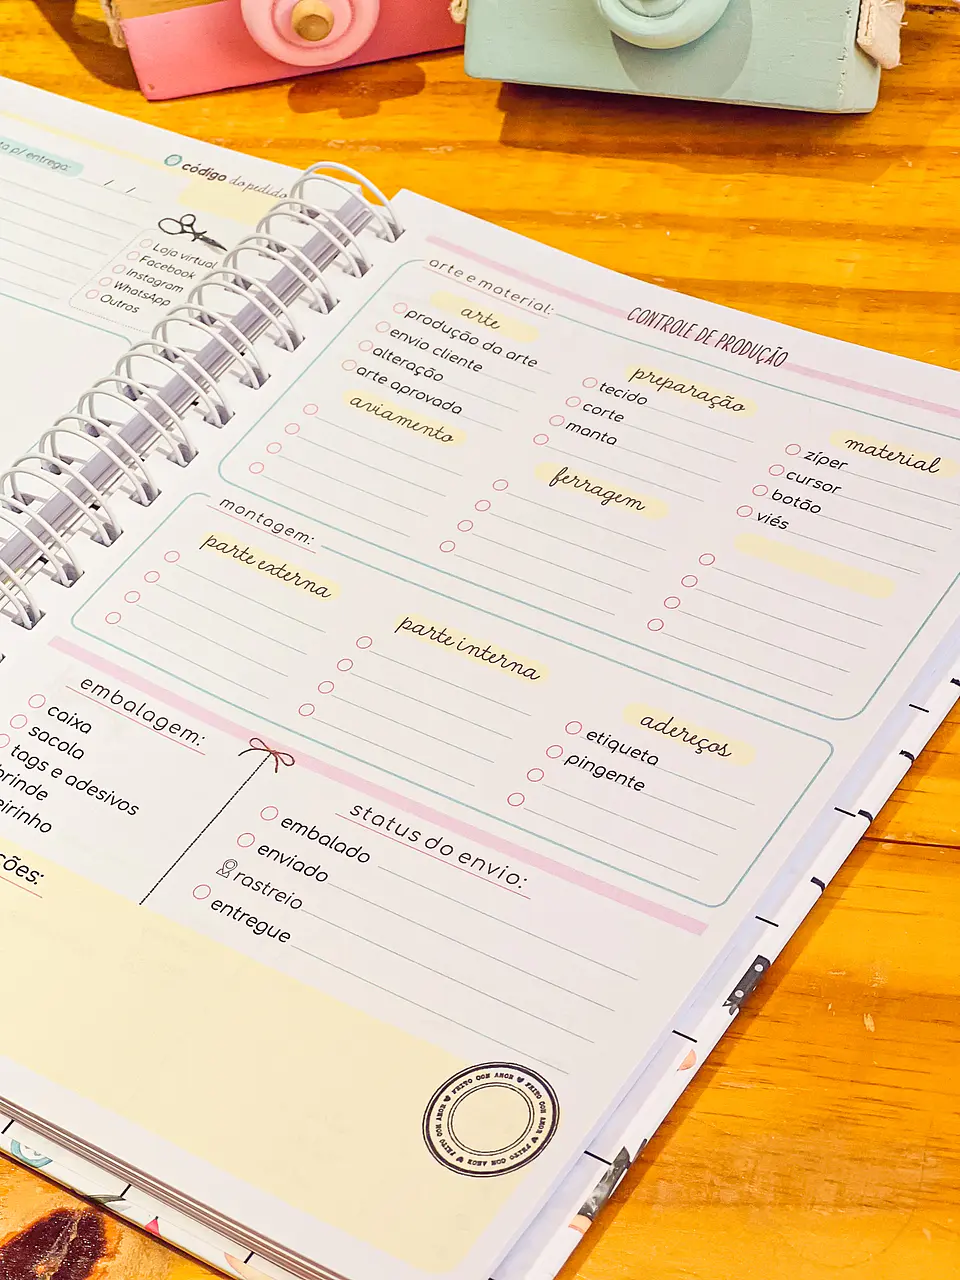 p/ entrega:
/ /
código do pedido
Loja virtual
Facebook
Instagram
WhatsApp
Outros
CONTROLE DE PRODUÇÃO
arte e material:
arte
produção da arte
envio cliente
alteração
arte aprovada
aviamento
preparação
tecido
corte
manta
ferragem
material
zíper
cursor
botão
viés
montagem:
parte externa
parte interna
adereços
etiqueta
pingente
embalagem:
caixa
sacola
tags e adesivos
brinde
status do envio:
embalado
enviado
rastreio
entregue
FEITO COM AMOR ♥ FEITO COM AMOR ♥ FEITO COM AMOR ♥ FEITO COM AMOR ♥